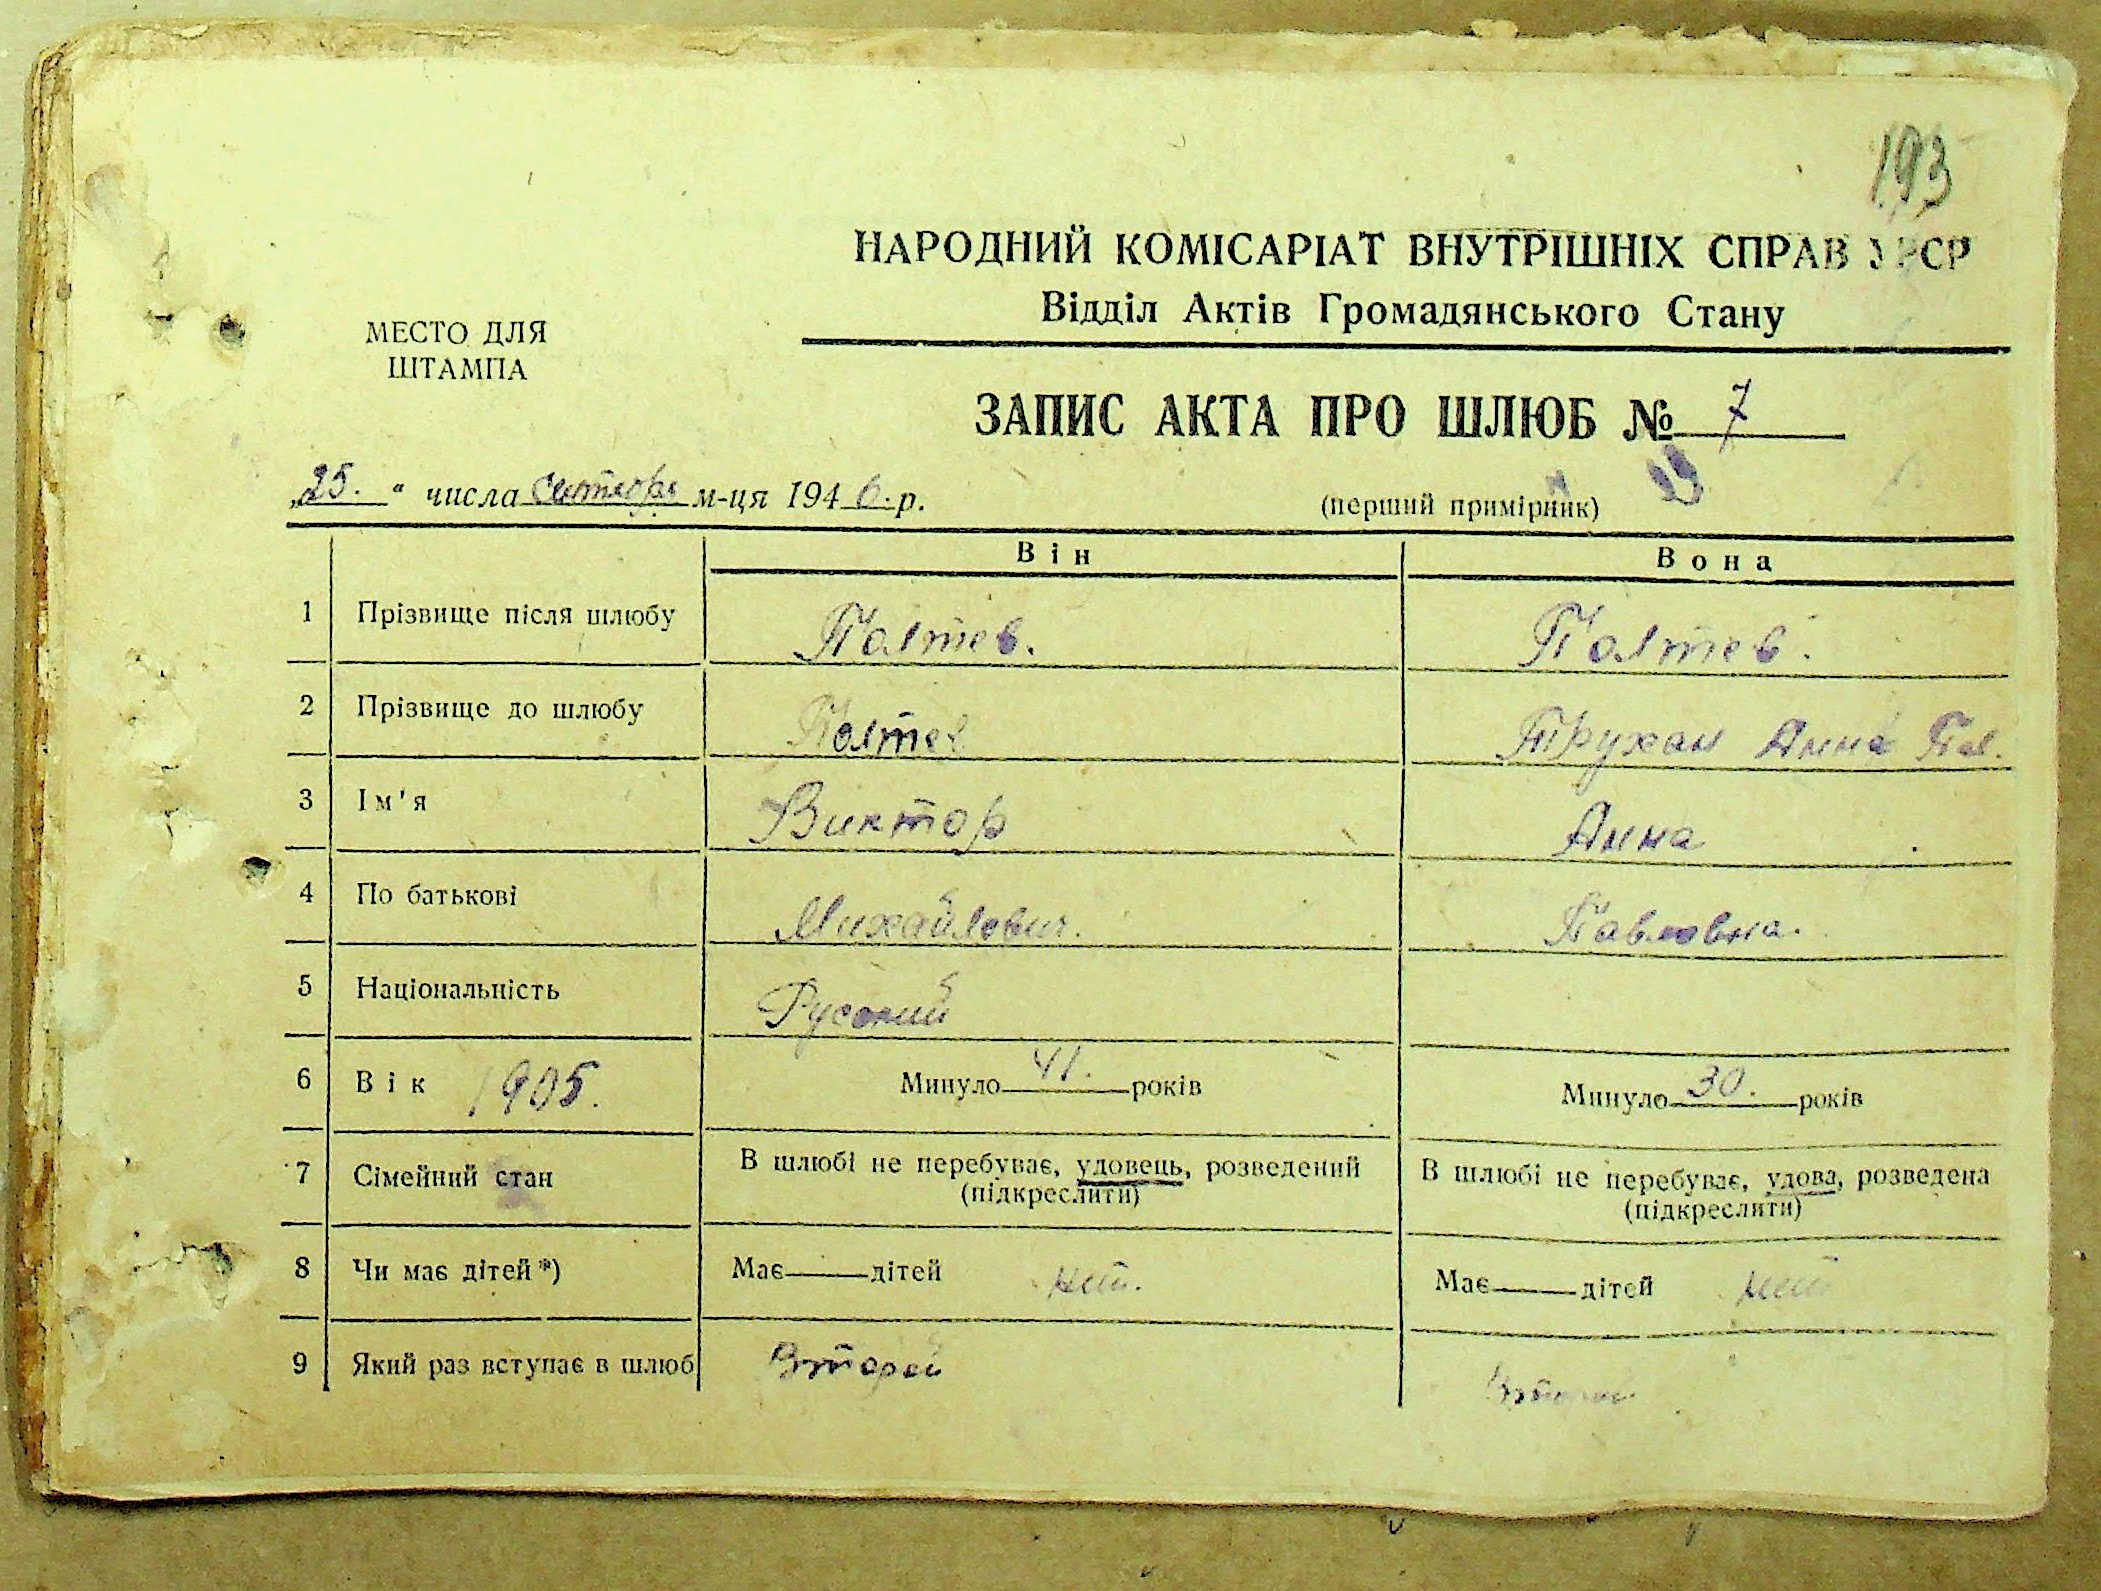 193
НАРОДНИЙ КОМІСАРІАТ ВНУТРІШНІХ СПРАВ УРСР
Відділ Актів Громадянського Стану
МЕСТО ДЛЯ
ШТАМПА
ЗАПИС АКТА ПРО ШЛЮБ № 7
„25.“ числа м-ця 1946.р.
(перший примірник)
Він Вона
1 Прізвище після шлюбу Полтев. Полтев.
2 Прізвище до шлюбу Полтев Трухан Анна Пав.
3 Ім'я Виктор Анна
4 По батькові Михайлович. Павловна.
5 Національність Русский
6 Вік 1905. Минуло 41. років Минуло 30. років
7 Сімейний стан В шлюбі не перебуває, удовець, розведений В шлюбі не перебуває, удова, розведена
(підкреслити) (підкреслити)
8 Чи має дітей*) Має дітей нет. Має дітей нет
9 Який раз вступає в шлюб Второй